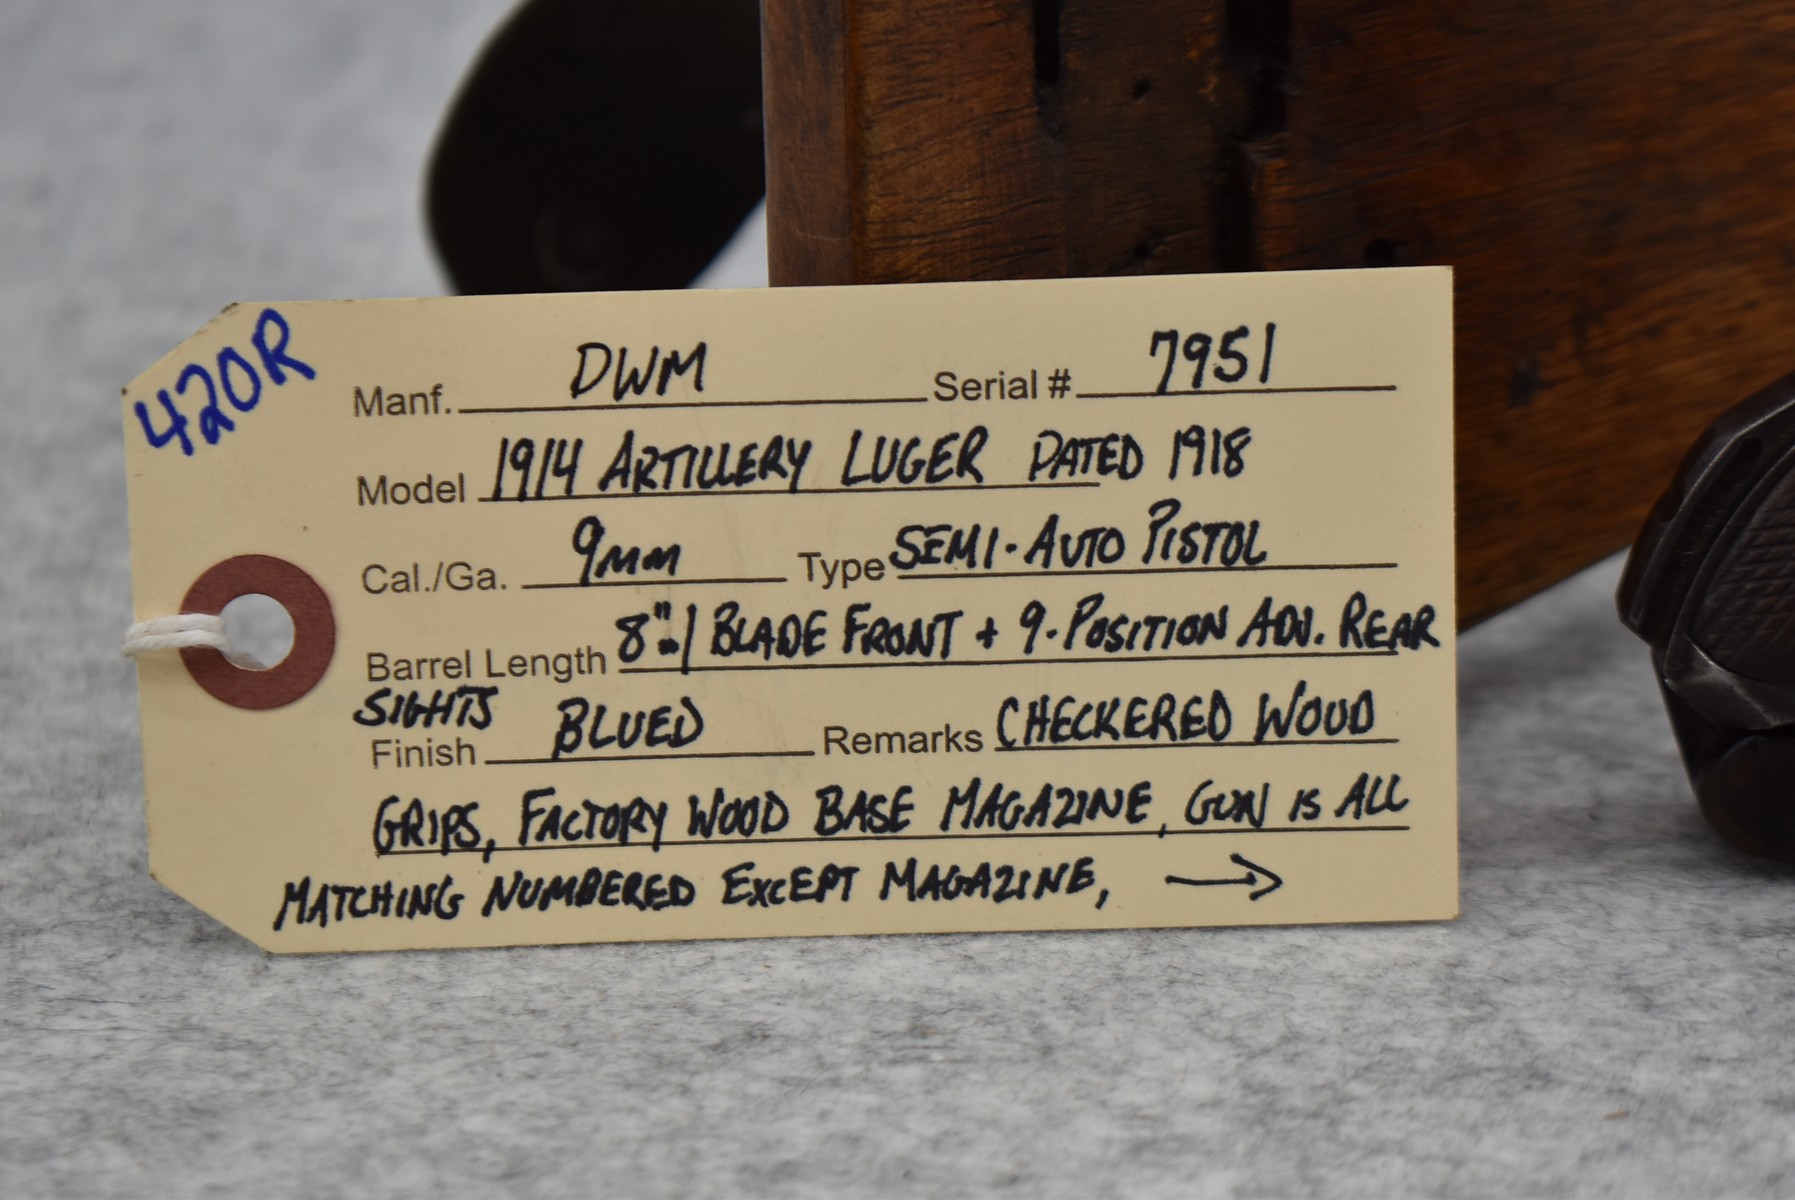 420R
Manf. DWM Serial # 7951
Model 1914 ARTILLERY LUGER DATED 1918
Cal./Ga. 9mm Type SEMI-AUTO PISTOL
Barrel Length 8"/ BLADE FRONT + 9-POSITION ADJ. REAR
SIGHTS
Finish BLUED Remarks CHECKERED WOOD
GRIPS, FACTORY WOOD BASE MAGAZINE, GUN IS ALL
MATCHING NUMBERED EXCEPT MAGAZINE, →